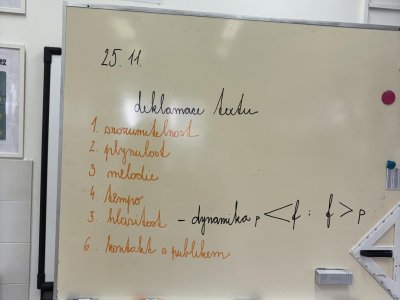 25. 11.
deklamace textu
1. srozumitelnost
2. plynulost
3. melodie
4. tempo
5. hlasitost – dynamika p < f ; f > p
6. kontakt s publikem